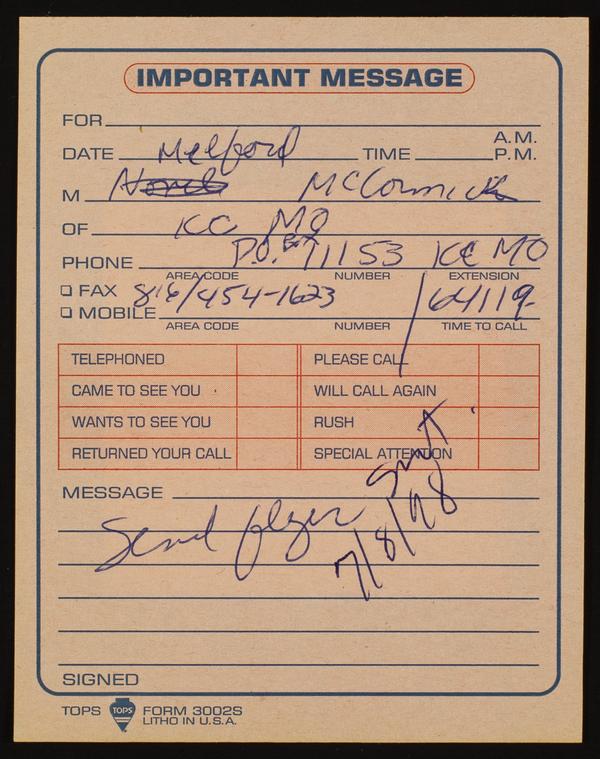 IMPORTANT MESSAGE
FOR
A.M.
DATE Melford TIME P.M.
M McCormick
OF KC MO
PHONE P.O. Box 11153 KC MO
AREA CODE NUMBER EXTENSION
FAX 816/454-1623 / 64119
MOBILE
AREA CODE NUMBER TIME TO CALL
TELEPHONED PLEASE CALL
CAME TO SEE YOU WILL CALL AGAIN
WANTS TO SEE YOU RUSH
RETURNED YOUR CALL SPECIAL ATTENTION
MESSAGE
Send flyer Sent
7/8/98
SIGNED
TOPS TOPS FORM 3002S
LITHO IN U.S.A.